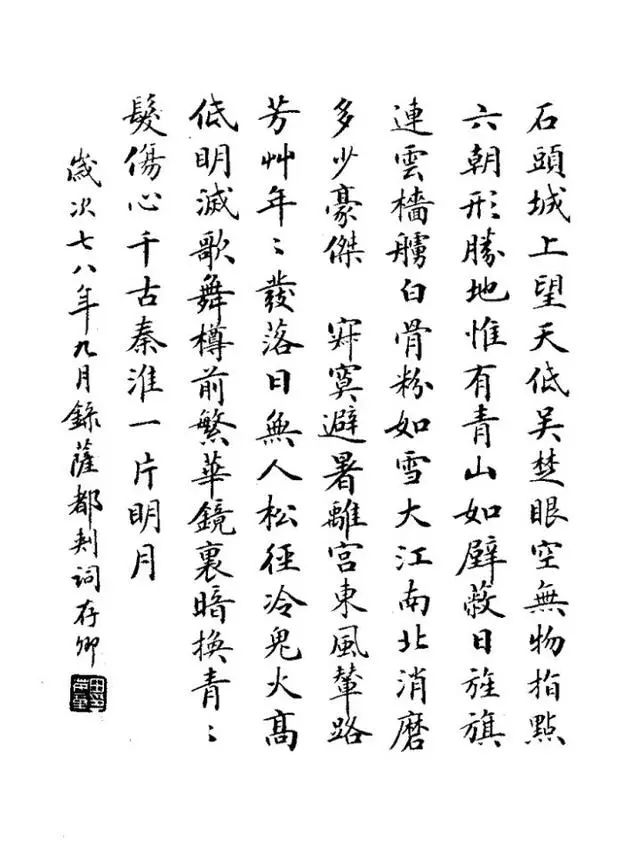 石頭城上望天低吳楚眼空無物指點
六朝形勝地惟有青山如壁蔽日旌旗
連雲檣艣白骨紛如雪大江南北消磨
多少豪傑 寂寞避暑離宮東風輦路
芳艸年〻發落日無人松徑冷鬼火高
低明滅歌舞樽前繁華鏡裏暗換青〻
髮傷心千古秦淮一片明月
歲次七八年九月錄薩都剌詞存卿